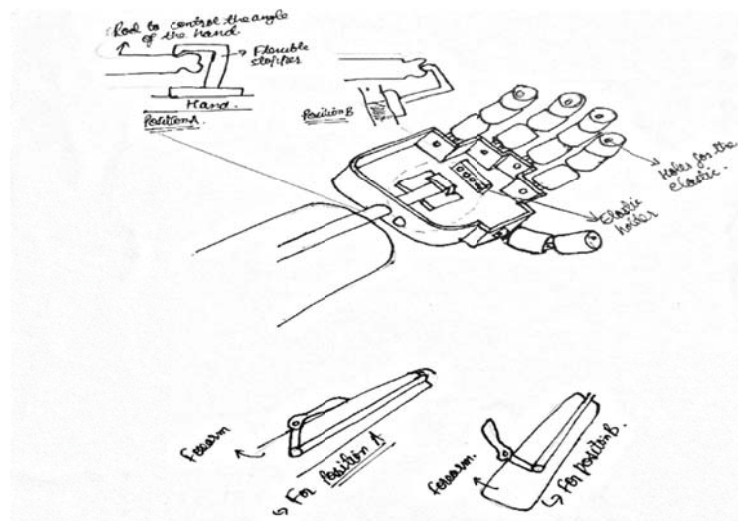 Rod to control the angle
of the hand
Flexible
stopper
Hand.
Position A.
Position B
Holes for the
elastic.
Elastic
holder
Forearm
↳ For Position A
Forearm.
↳ For position B.